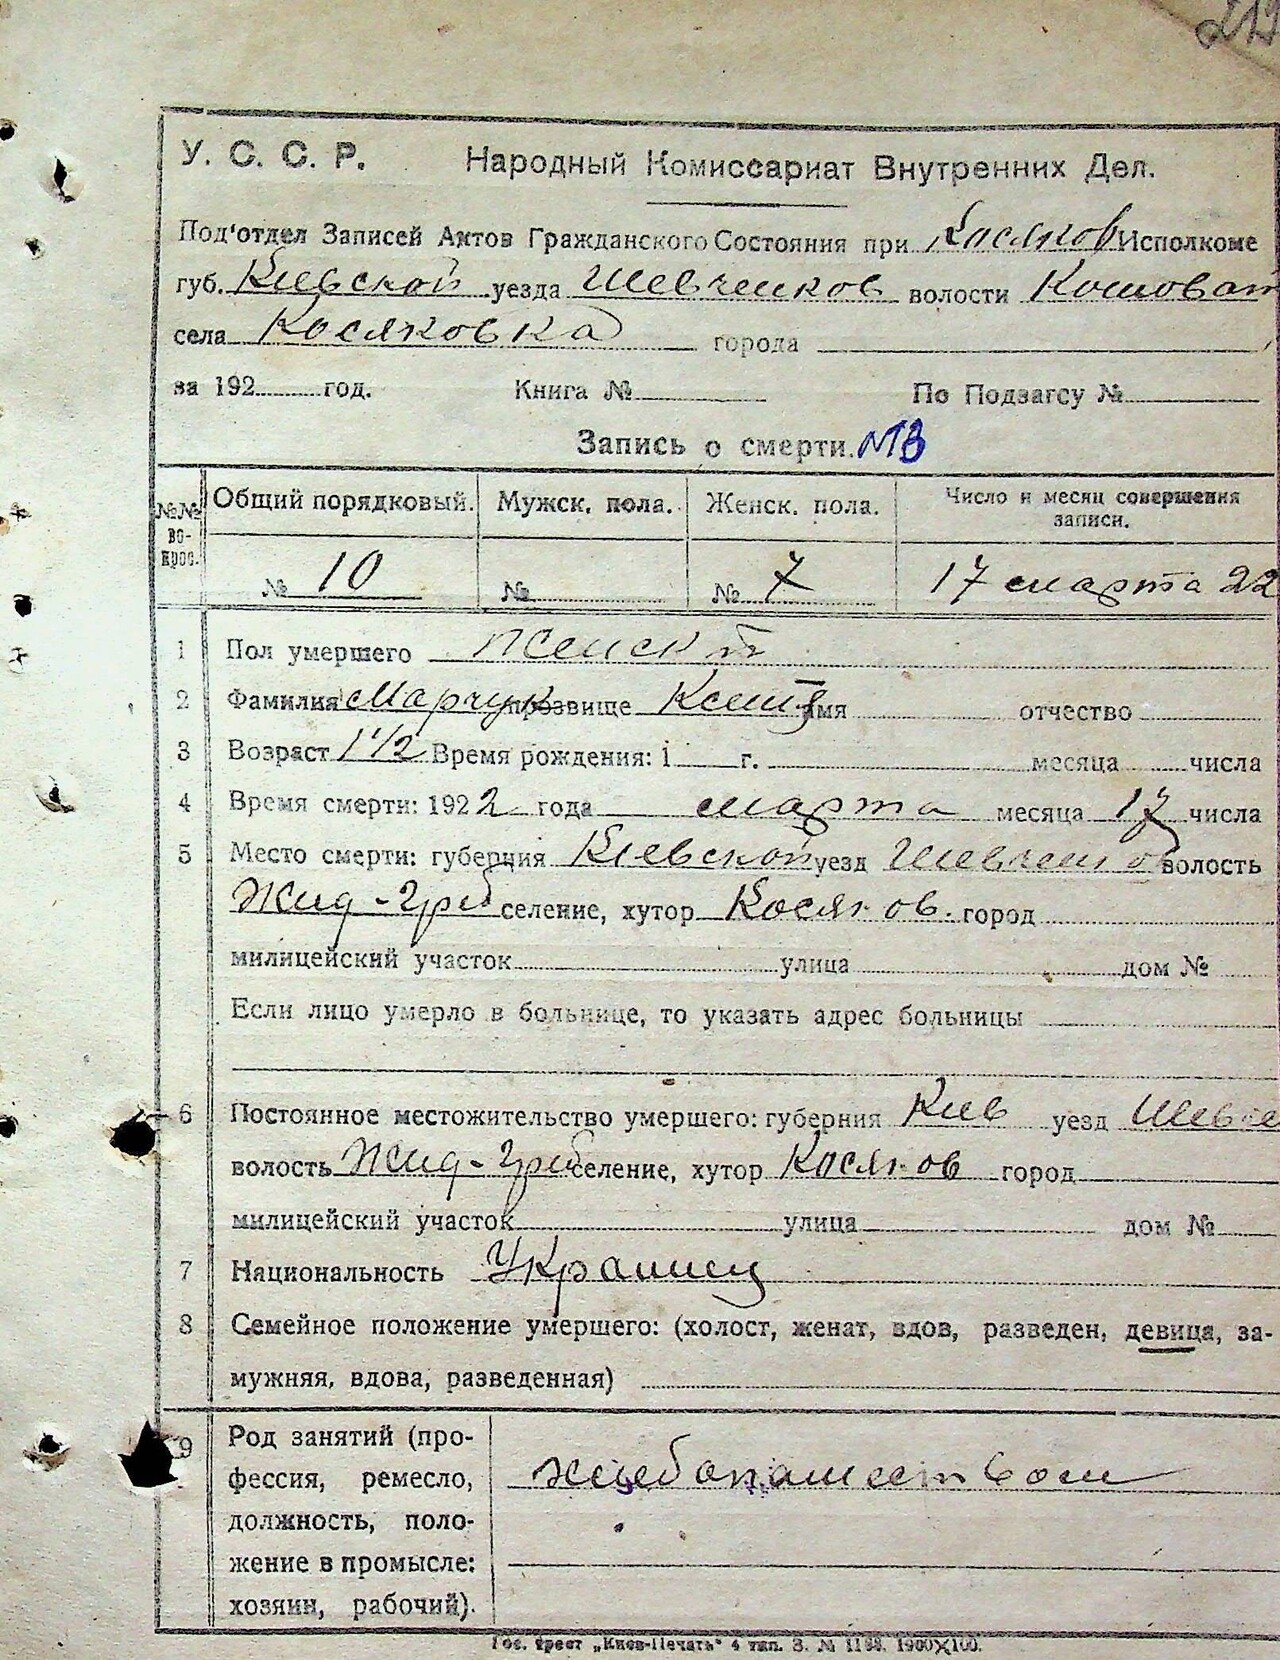 212
У. С. С. Р. Народный Комиссариат Внутренних Дел.
Под'отдел Записей Актов Гражданского Состояния при Косяков Исполкоме
губ. Киевской уезда Шевченков волости Кошоват
села Косяковка города
за 192 год. Книга № По Подзагсу №
Запись о смерти.
№№ вопрос. Общий порядковый. Мужск. пола. Женск. пола. Число и месяц совершения записи.
№ 10 № № 7 17 марта 22
1 Пол умершего женский
2 Фамилия Марчук прозвище имя отчество
3 Возраст 1 1/2 Время рождения: 1 г. месяца числа
4 Время смерти: 1922 года марта месяца 17 числа
5 Место смерти: губерния Киевской уезд Шевченков волость
Жид-Греб селение, хутор Косяков. город
милицейский участок улица дом №
Если лицо умерло в больнице, то указать адрес больницы
6 Постоянное местожительство умершего: губерния Киев уезд Шевче
волость Жид-Греб селение, хутор Косяков город
милицейский участок улица дом №
7 Национальность Украинец
8 Семейное положение умершего: (холост, женат, вдов, разведен, девица, за-
мужняя, вдова, разведенная)
9 Род занятий (про-
фессия, ремесло, хлебопашеством
должность, поло-
жение в промысле:
хозяин, рабочий).
Гос. трест „Киев-Печать" 4 тип. З. № 1198. 1900×100.